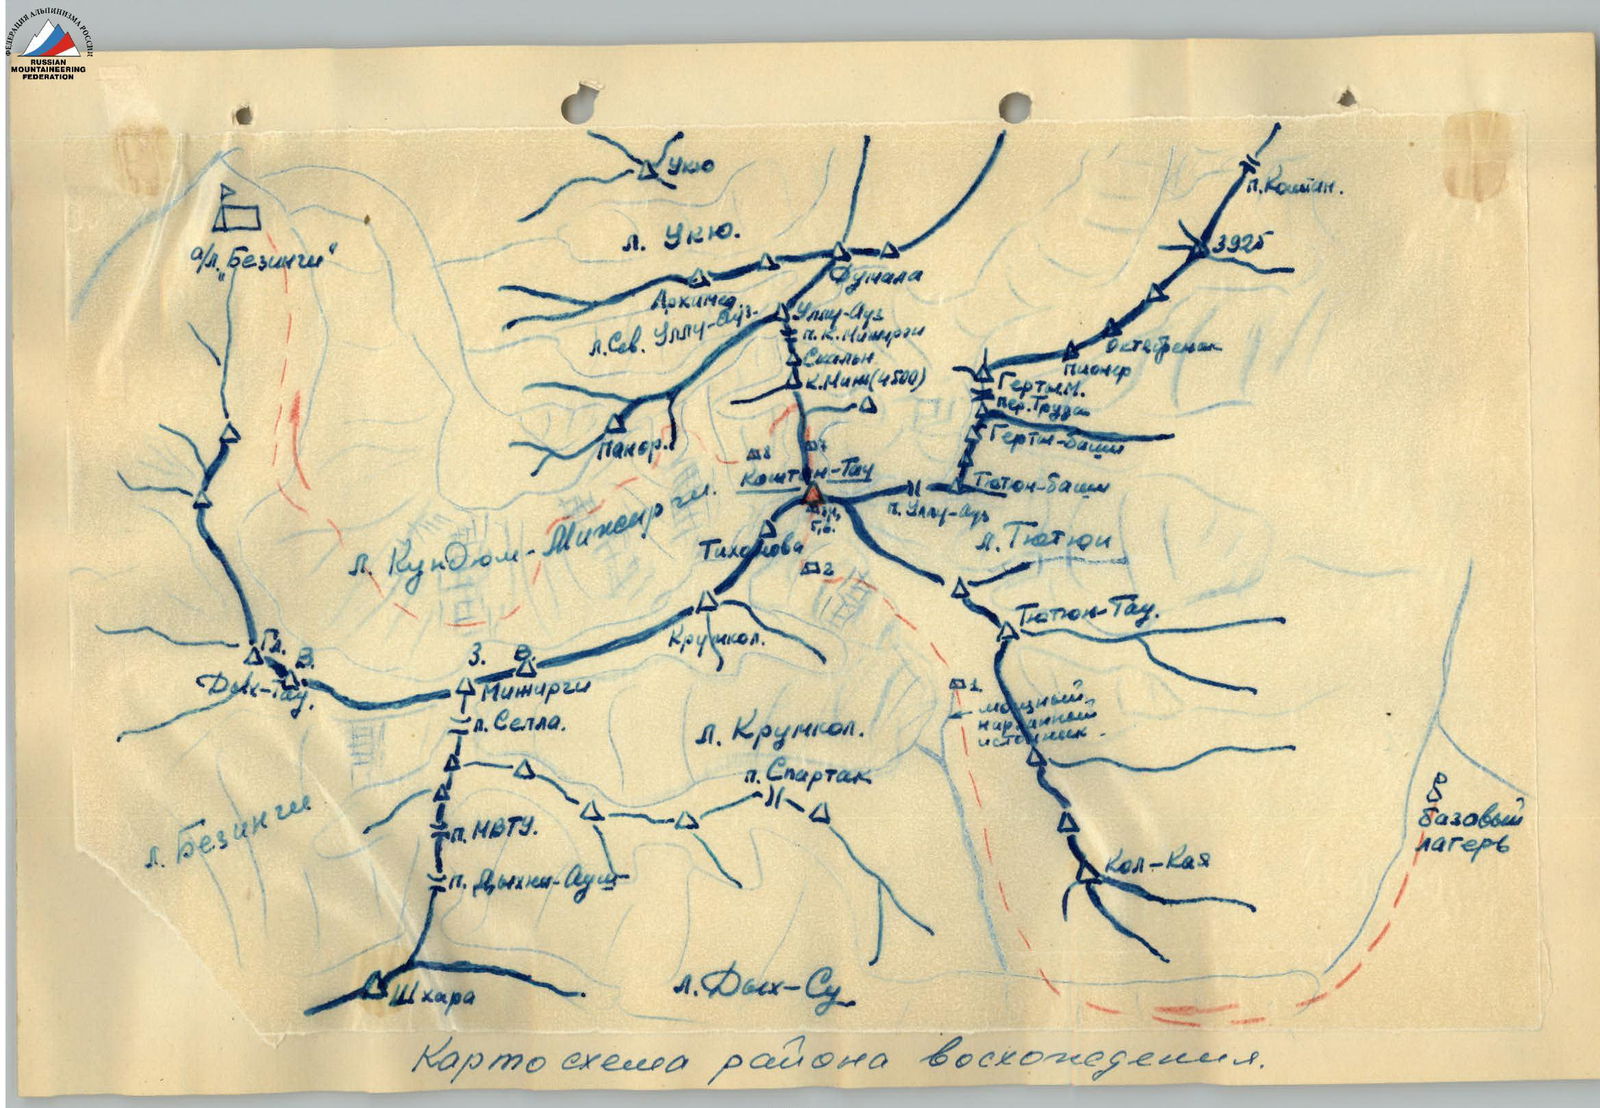 ФЕДЕРАЦИЯ АЛЬПИНИЗМА РОССИИ
RUSSIAN
MOUNTAINEERING
FEDERATION
Укю
п. Коштан.
л. Укю.
3925
а/л „Безинги"
Фумала
Архимед.
Уллу-Ауз
л. Сев. Уллу-Ауз.
п. К. Мижирги
Октябренок
Скальн
Пионер
К. Миж (4500)
Герты м.
пер. Труда
Герты-Баши
Панор.
8
7
Коштан-Тау
Тютюн-Баши
п. Уллу-Ауз
л. Кундюм-Мижирги.
л. Тютюн
Тихонова
2
Тютюн-Тау.
Крумкол.
Гл.
В.
З.
В.
Дых-Тау.
Мижирги
1
мощный
нарзанный
источник.
п. Селла.
л. Крумкол.
п. Спартак
л. Безинги
п. МВТУ.
базовый
лагерь
п. Дыхни-Ауш
Кол-Кая
Шхара
л. Дых-Су
Картосхема района восхождения.